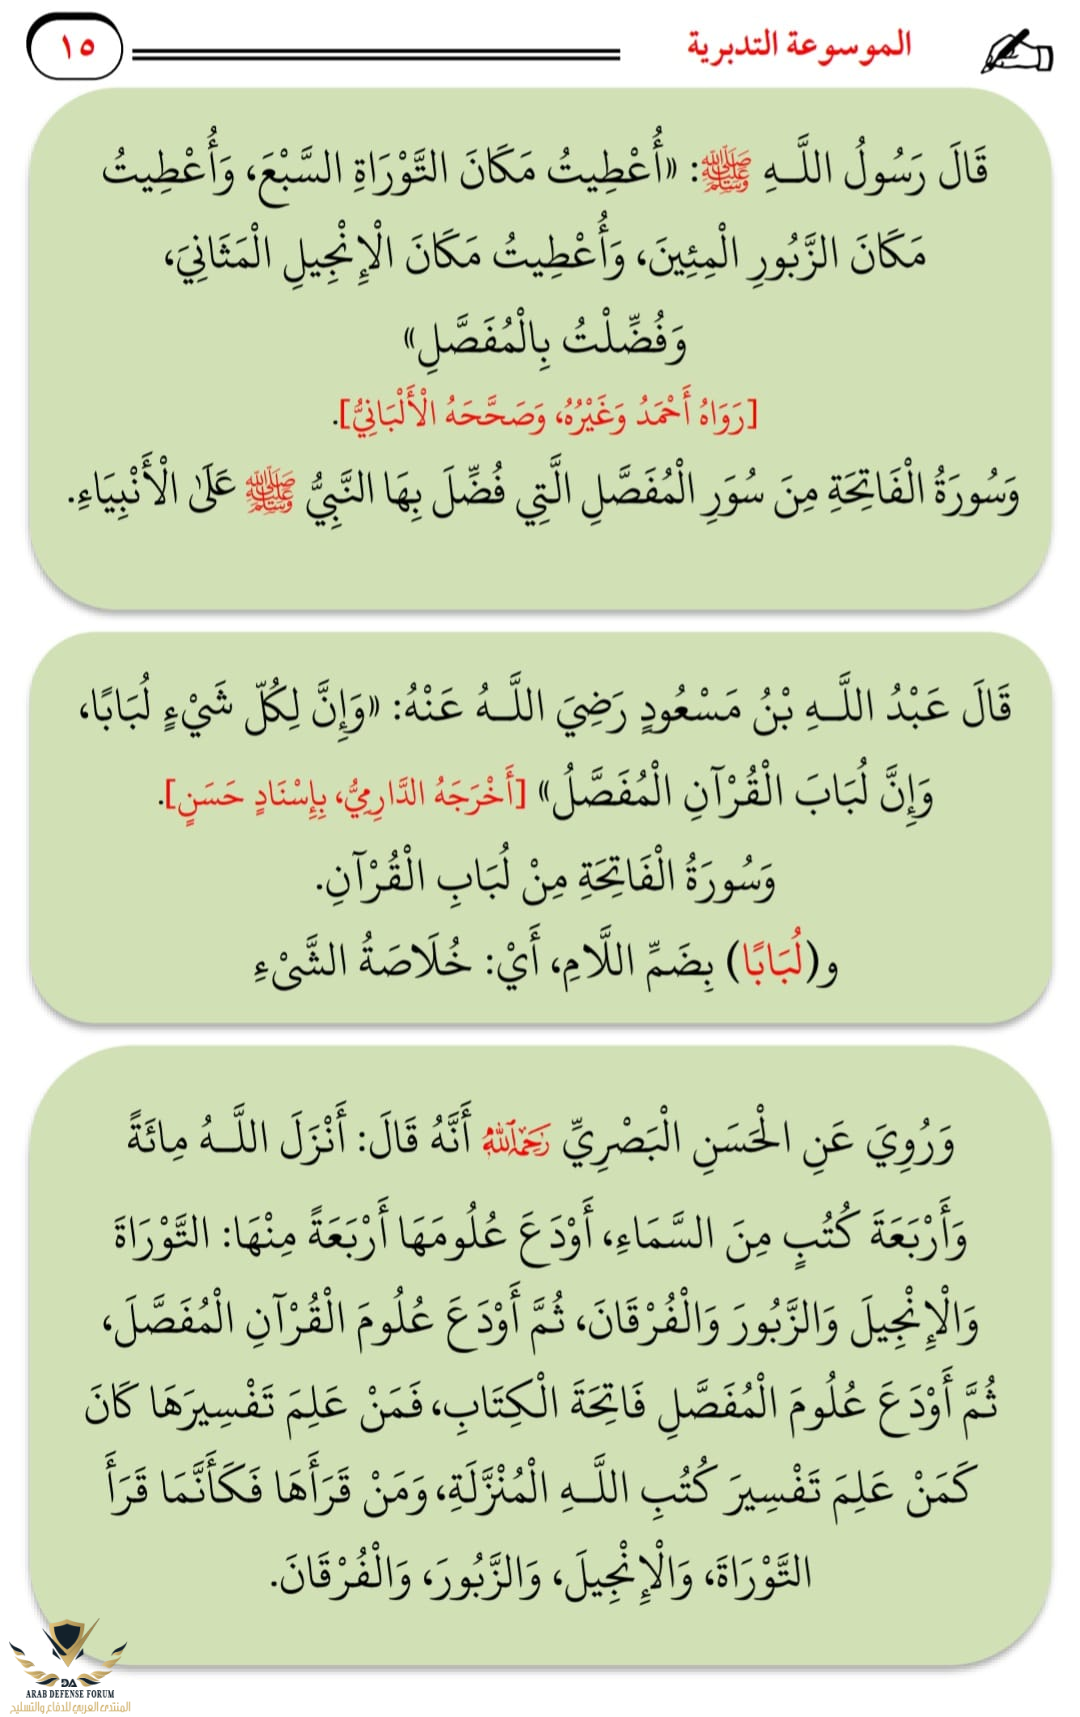 الموسوعة التدبرية
١٥
قَالَ رَسُولُ اللَّـهِ ﷺ: «أُعْطِيتُ مَكَانَ التَّوْرَاةِ السَّبْعَ، وَأُعْطِيتُ
مَكَانَ الزَّبُورِ الْمِئِينَ، وَأُعْطِيتُ مَكَانَ الْإِنْجِيلِ الْمَثَانِيَ،
وَفُضِّلْتُ بِالْمُفَصَّلِ»
[رَوَاهُ أَحْمَدُ وَغَيْرُهُ، وَصَحَّحَهُ الْأَلْبَانِيُّ].
وَسُورَةُ الْفَاتِحَةِ مِنَ سُوَرِ الْمُفَصَّلِ الَّتِي فُضِّلَ بِهَا النَّبِيُّ ﷺ عَلَى الْأَنْبِيَاءِ.
قَالَ عَبْدُ اللَّـهِ بْنُ مَسْعُودٍ رَضِيَ اللَّـهُ عَنْهُ: «وَإِنَّ لِكُلِّ شَيْءٍ لُبَابًا،
وَإِنَّ لُبَابَ الْقُرْآنِ الْمُفَصَّلُ» [أَخْرَجَهُ الدَّارِمِيُّ، بِإِسْنَادٍ حَسَنٍ].
وَسُورَةُ الْفَاتِحَةِ مِنْ لُبَابِ الْقُرْآنِ.
و(لُبَابًا) بِضَمِّ اللَّامِ، أَيْ: خُلَاصَةُ الشَّيْءِ
وَرُوِيَ عَنِ الْحَسَنِ الْبَصْرِيِّ رَحِمَهُ اللَّهُ أَنَّهُ قَالَ: أَنْزَلَ اللَّـهُ مِائَةً
وَأَرْبَعَةَ كُتُبٍ مِنَ السَّمَاءِ، أَوْدَعَ عُلُومَهَا أَرْبَعَةً مِنْهَا: التَّوْرَاةَ
وَالْإِنْجِيلَ وَالزَّبُورَ وَالْفُرْقَانَ، ثُمَّ أَوْدَعَ عُلُومَ الْقُرْآنِ الْمُفَصَّلَ،
ثُمَّ أَوْدَعَ عُلُومَ الْمُفَصَّلِ فَاتِحَةَ الْكِتَابِ، فَمَنْ عَلِمَ تَفْسِيرَهَا كَانَ
كَمَنْ عَلِمَ تَفْسِيرَ كُتُبِ اللَّـهِ الْمُنْزَّلَةِ، وَمَنْ قَرَأَهَا فَكَأَنَّمَا قَرَأَ
التَّوْرَاةَ، وَالْإِنْجِيلَ، وَالزَّبُورَ، وَالْفُرْقَانَ.
DA
ARAB DEFENSE FORUM
المنتدى العربي للدفاع والتسليح